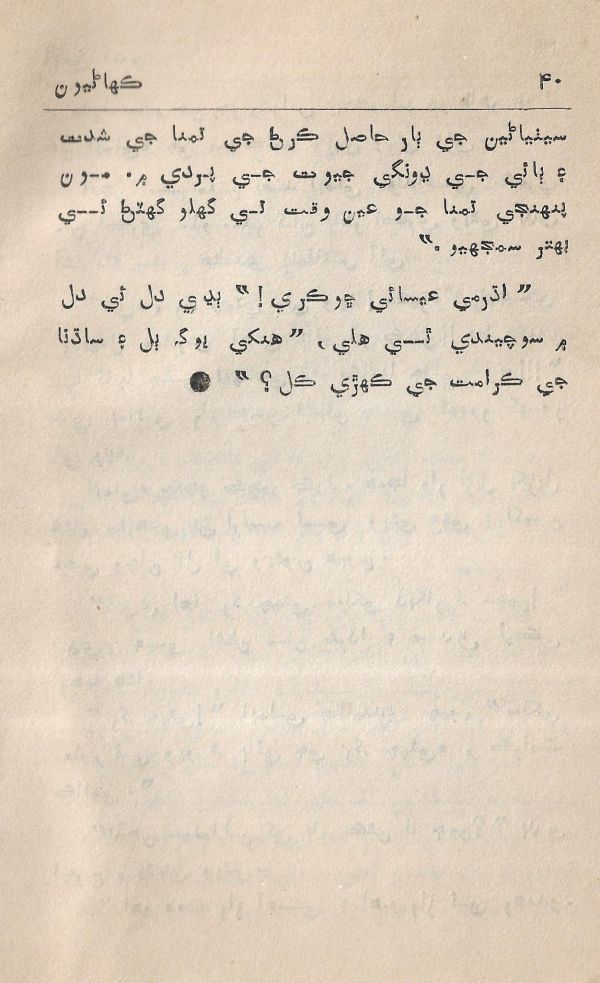 ۴۰ ڪهاڻيون
سيٺياڻين جي ٻار حاصل ڪرڻ جي تمنا جي شدت
۽ ٻائي جي ڍونگي جيوت جي پردي ۾. مون
پنهنجي تمنا جو عين وقت تي گهلو گهٽڻ ئي
بهتر سمجهيو."
"اڌرمي عيسائي ڇوڪري!" ٻڍي دل ئي دل
۾ سوچيندي ٿي هلي، "هنکي يوگہ ٻل ۽ ساڌنا
جي ڪرامت جي ڪهڙي ڪل؟"